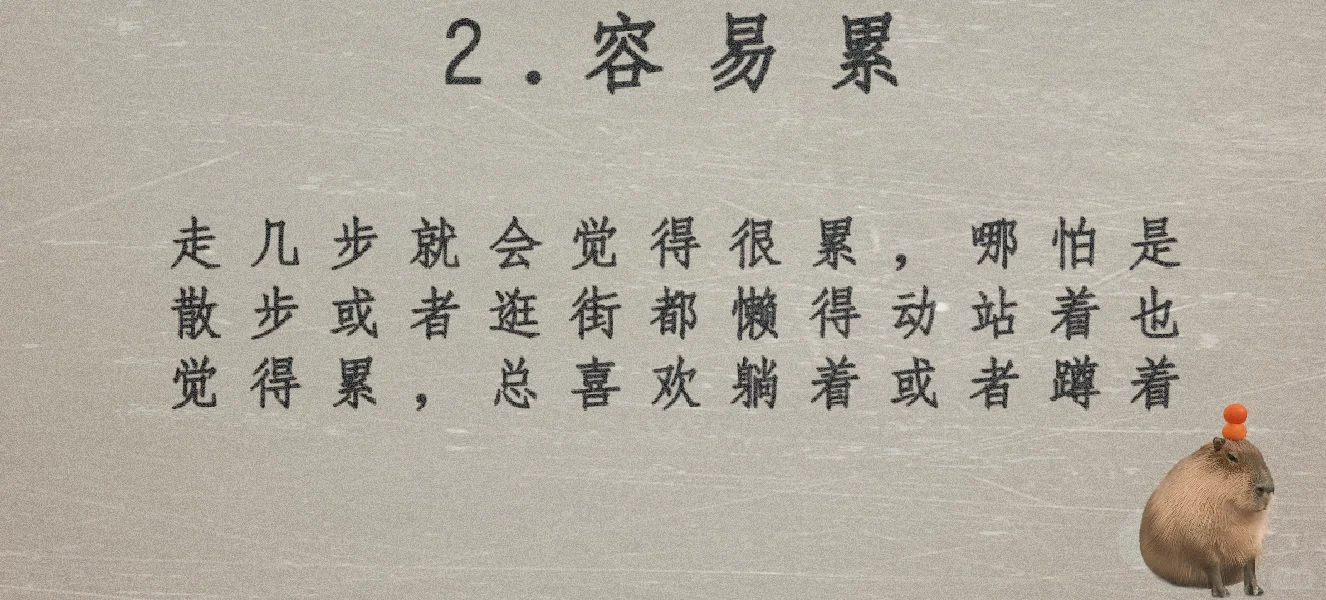 2.容易累
走几步就会觉得很累，哪怕是
散步或者逛街都懒得动站着也
觉得累，总喜欢躺着或者蹲着